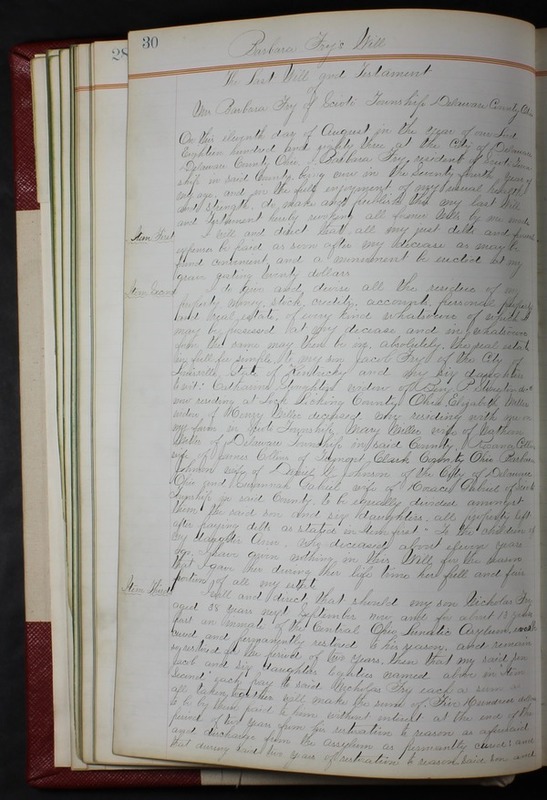 28
30
Barbara Fry's Will
The Last Will and Testament
Barbara Fry of Scioto Township Delaware County Ohio
On this eleventh day of August in the year of our Lord
Eighteen hundred and eighty three at the City of Delaware
Delaware County Ohio I Barbara Fry resident of Scioto Town-
ship in said County being now in the Seventy fourth year of
my age, and in the full enjoyment of my usual health
and strength, do make and publish this my last Will
and Testament hereby revoking all former Wills by me made
Item First I will and direct that all my just debts and funeral
expenses be paid as soon after my decease as may be
found convenient and a monument be erected at my
grave costing twenty dollars
Item Second I do give and devise all the residue of my
property money, stock, credits, accounts, personal property
and real estate, of every kind whatsoever of which I
may be possessed at my decease and in whatsoever
form the same may then be in, absolutely, the real estate
in fee simple, to my son Jacob Fry of the City
Louisville State of Kentucky and my six daughters
to wit: Catharine widow of
now residing at Lock Licking County Ohio, Elizabeth Miller
widow of Henry Miller deceased now residing with me on
my farm in Scioto Township, Mary Miller wife of
Miller of Delaware Township in said County, Rosana Collins
wife of James Collins of Tremont, Clark County Ohio Barbara
Johnson wife of Daniel Johnson of the City of Delaware
Ohio and Susannah Gabriel, wife of Horace Gabriel of Scioto
Township in said County, to be equally divided amongst
them the said son and six daughters, all property left
after paying debts as stated in item first. To the children of
my daughter Ann deceased about years
ago, I have given nothing in this Will for the reason
that I gave her during her life time her full and fair
portion of all my estate.
Item Third I will and direct, that should my son Nicholas Fry
aged 38 years next September now and for about 13 years
past an inmate of the Central Ohio Lunatic Asylum,
cured and permanently restored to his reason, and remain
so restored for the period of two years, then that my said son
Jacob and six daughters legatees named above in "Item
Second" each pay to said Nicholas Fry each a sum as
all taken together will make the sum of Five Hundred dollars
to be by them paid to him without interest at the end of the
period of two years from his restoration to reason as aforesaid
and discharge from the asylum as permanently cured; and
that during said two years of restoration to reason said son and